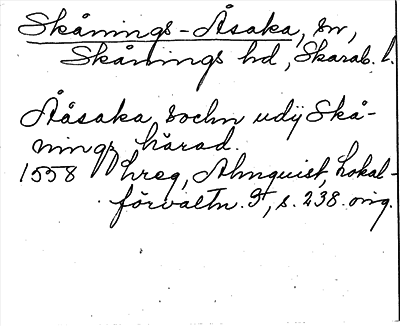 Skånings-Åsaka, sn,
Skånings hd, Skarab. l.
Åsaka sochn udij Skå-
nings härad.
1558 hreg, Almquist, Lokal-
förvaltn. I, s. 238. orig.